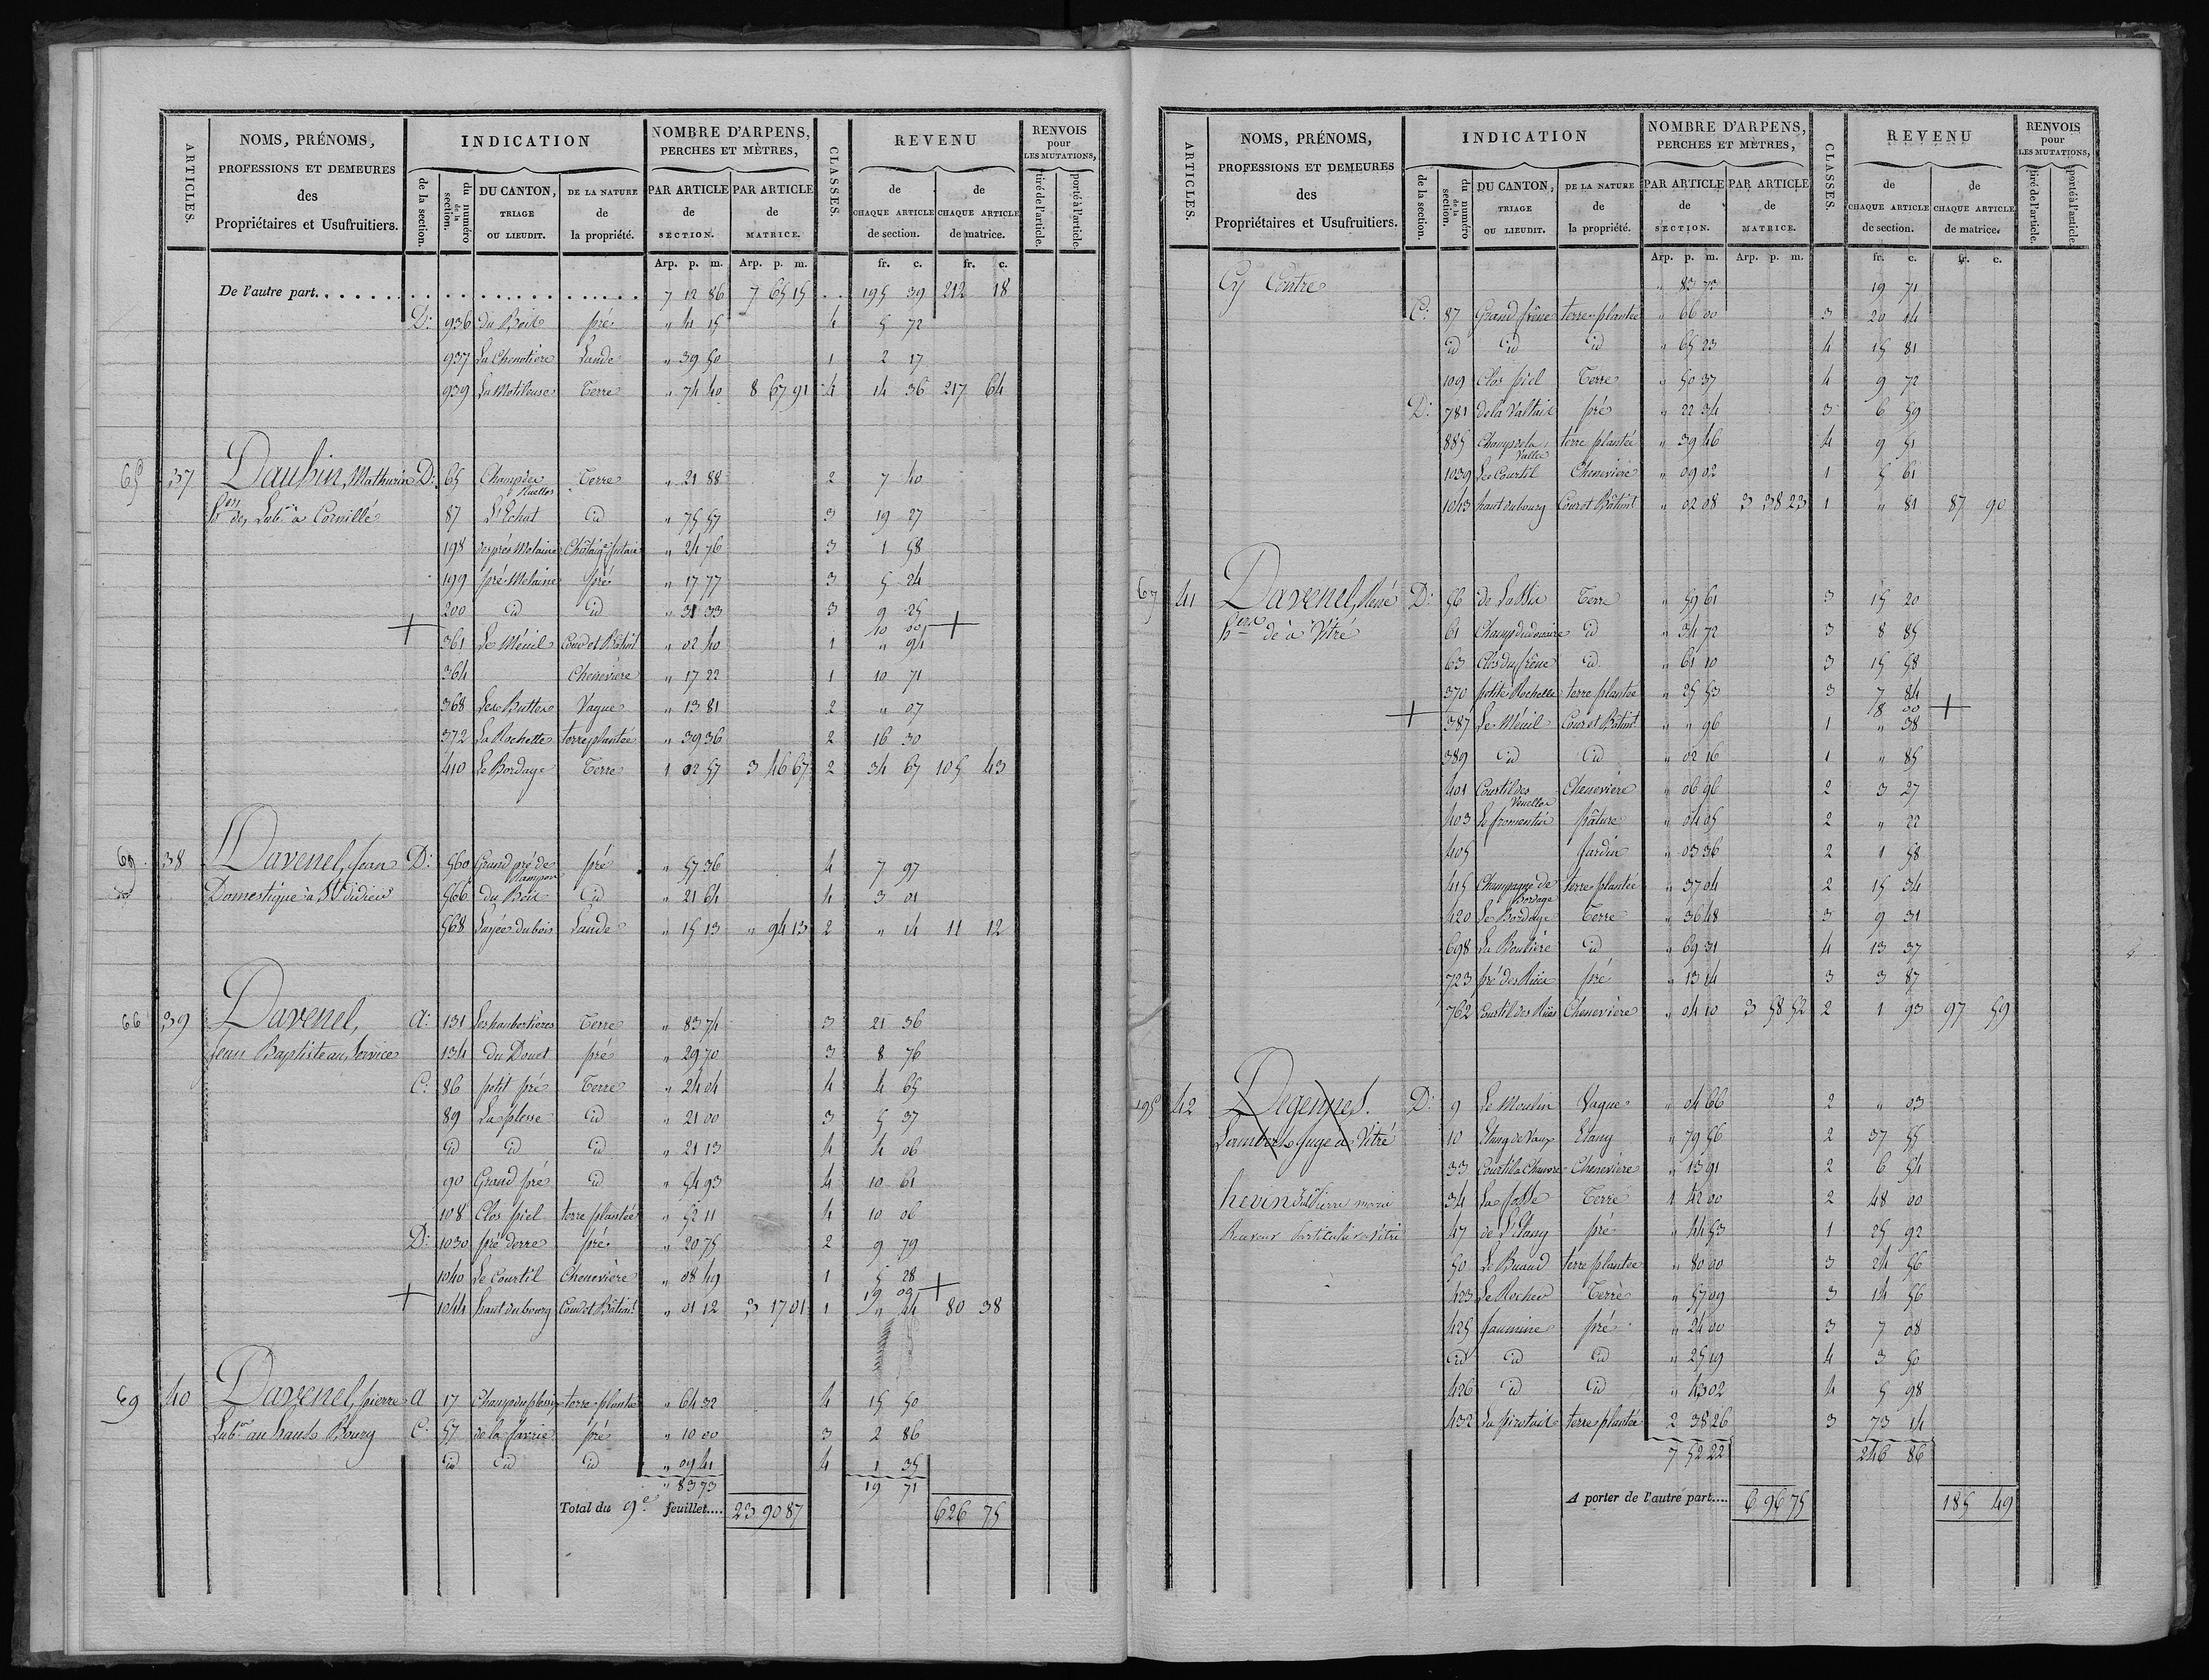 ARTICLES.
NOMS, PRÉNOMS,
PROFESSIONS ET DEMEURES
des
Propriétaires et Usufruitiers.
INDICATION
de la section.
du numéro de la section.
DU CANTON, TRIAGE OU LIEUDIT.
DE LA NATURE de la propriété.
NOMBRE D'ARPENS, PERCHES ET MÈTRES,
PAR ARTICLE de SECTION.
PAR ARTICLE de MATRICE.
CLASSES.
REVENU
de CHAQUE ARTICLE de section.
de CHAQUE ARTICLE de matrice.
RENVOIS pour LES MUTATIONS,
tiré de l'article.
porté à l'article.
Arp. p. m. Arp. p. m. fr. c. fr. c.
De l'autre part. 7 12 86 7 65 15 195 39 212 18
D: 936 du Bois pré " 41 15 4 5 72
937 La Chenotière Lande " 39 50 1 2 17
939 La Motileuse Terre " 74 40 8 67 91 4 14 36 217 64
65 37 Daubin, Mathurin D: 65 Champ des Ruelles Terre " 21 88 2 7 40
Lab.r à Cornillé 87 L'Echat id " 75 57 3 19 27
198 des prés Melaine Châtaig. futaie " 24 76 3 1 58
199 pré Melaine pré " 17 77 3 5 24
200 id id " 31 33 3 9 25
10 00 +
+ 361 Le Ménil Cour et Bâtim.t " 02 40 1 " 94
364 Chenevière " 17 22 1 10 71
368 Les Buttes Vague " 13 81 2 " 07
372 La Rochette terre plantée " 39 36 2 16 30
410 Le Bordage Terre 1 02 57 3 46 67 2 34 67 105 43
69 38 Davenel, Jean D: 560 Grand pré de pré " 57 36 4 7 97
Domestique à St didier 566 du Bois id " 21 64 4 3 01
568 Layée du bois Lande " 15 13 " 94 13 2 " 14 11 12
66 39 Davenel, A: 131 Les haubertières Terre " 83 74 3 21 36
Jean Baptiste au Service 134 du Douet pré " 29 70 3 8 76
C: 86 petit pré Terre " 24 04 4 4 65
89 La plesse id " 21 00 3 5 37
id id id " 21 13 4 4 06
90 Grand pré id " 54 93 4 10 61
108 Clos piel terre plantée " 52 11 4 10 06
D: 1030 pré derre pré " 20 75 2 9 79
1040 Le Courtil Chenevière " 08 49 1 5 28
19 09 +
+ 1044 haut du bourg Cour et Bâtim.t " 01 12 3 17 01 1 " 44 80 38
69 40 Davenel, pierre A 17 Champ du plessis terre plantée " 64 32 4 15 50
Lab.r au haut Bourg C: 57 de la Javrie pré " 10 00 3 2 86
id id id " 09 41 4 1 35
" 83 73 19 71
Total du 9e feuillet.... 23 90 87 626 75
ARTICLES.
NOMS, PRÉNOMS,
PROFESSIONS ET DEMEURES
des
Propriétaires et Usufruitiers.
INDICATION
de la section.
du numéro de la section.
DU CANTON, TRIAGE OU LIEUDIT.
DE LA NATURE de la propriété.
NOMBRE D'ARPENS, PERCHES ET MÈTRES,
PAR ARTICLE de SECTION.
PAR ARTICLE de MATRICE.
CLASSES.
REVENU
de CHAQUE ARTICLE de section.
de CHAQUE ARTICLE de matrice.
RENVOIS pour LES MUTATIONS,
tiré de l'article.
porté à l'article.
Arp. p. m. Arp. p. m. fr. c. fr. c.
Cy Contre " 83 73 19 71
C: 87 Grand frêne terre plantée " 66 00 3 20 14
id id id " 65 23 4 15 81
109 Clos piel Terre " 50 37 4 9 72
D: 781 de la Valtais pré " 22 34 3 6 59
885 Champ de la Vallée terre plantée " 39 46 4 9 51
1039 Le Courtil Chenevière " 09 02 1 5 61
1043 haut du bourg Cour et Bâtim.t " 02 08 3 38 23 1 " 81 87 90
67 41 Davenel, René D: 56 Terre " 59 61 3 15 20
à Vitré 61 id " 34 72 3 8 85
63 Clos du frêne id " 61 10 3 15 58
370 petite Rochelle terre plantée " 25 53 3 7 84
18 00 +
+ 387 Le Ménil Cour et Bâtim.t " " 96 1 " 38
389 id id " 02 16 1 " 85
401 Courtil des Venelles Chenevière " 06 96 2 3 27
403 Le fromentin pâture " 04 05 2 " 22
405 Jardin " 03 36 2 1 58
415 Champagne de Bordage terre plantée " 37 04 2 15 34
420 Le Bordage Terre " 36 48 3 9 31
698 La Boulière id " 69 31 4 13 37
723 pré des Rües pré " 13 14 3 3 87
762 Courtil des Rües Chenevière " 04 10 3 58 52 2 1 93 97 59
195 42 Degennes. D: 9 Le Moulin Vague " 04 66 2 " 03
Juge à Vitré 10 Etang de Vaux Etang " 79 56 2 37 55
33 Courtil à Chanvre Chenevière " 13 91 2 6 54
hevin Pierre marie 34 La fosse Terre 1 42 00 2 48 00
à Vitré 47 de L'Etang pré " 44 53 1 25 92
50 Le Buard terre plantée " 80 00 3 24 56
423 Le Rocher Terre " 57 09 3 14 56
425 Jaumine pré " 24 00 3 7 08
id id id " 25 19 4 3 50
426 id id " 43 02 4 5 98
432 La pirotais terre plantée 2 38 26 3 73 14
7 52 22 246 86
A porter de l'autre part.... 6 96 75 185 49